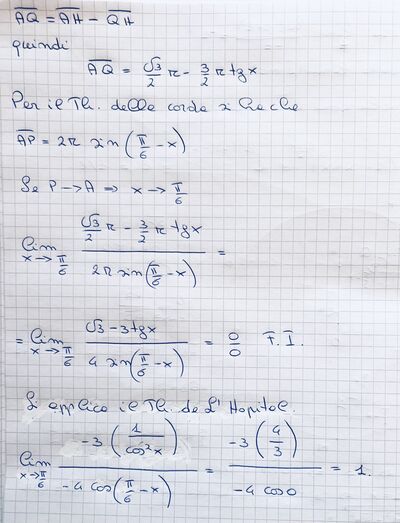 A̅Q̅ = A̅H̅ - Q̅H̅
quindi
A̅Q̅ = √3/2 r - 3/2 r tgx
Per il Th. delle corde si ha che
A̅P̅ = 2r sin(π/6 - x)
Se P → A ⇒ x → π/6
lim x→π/6 (√3/2 r - 3/2 r tgx) / (2r sin(π/6 - x)) =
= lim x→π/6 (√3 - 3tgx) / (4 sin(π/6 - x)) = 0/0 F.I.
Si applica il Th. de L'Hopital.
lim x→π/6 (-3 (1/cos²x)) / (-4 cos(π/6 - x)) = (-3 (4/3)) / (-4 cos0) = 1.